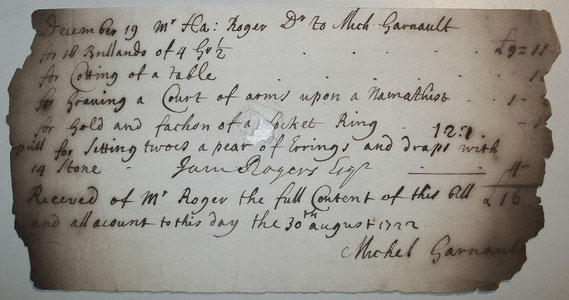 December 19 Mr Ha: Roger Dr to Mich Garnault
for 18 Brillands of 4 Gr ½ . . . . £9=11
for Cotting of a table . . . .
for Graving a Court of arms upon a Namathist . 1-
for Gold and fachon of a Ring - 12.
for Setting twors a pear of Errings and draps with
14 Stone - Jam Rogers Esqr
£16
Receved of Mr Roger the full Content of this Bill
and all account to this day the 30th august 1722
Michel Garnault